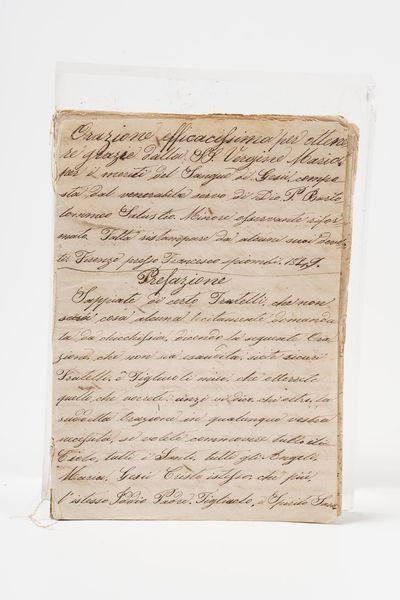 Orazione efficacissima per ottene
re grazie dalla SS. Vergine Maria
per i meriti del Sangue di Gesù, compo
sta dal venerabile servo di Dio P. Barto
lommeo Salustio Minore osservante rifor
mato. Fatta ristampare da alcuni suoi devo
ti. Firenze presso Francesco
Prefazione
Sappiate di certo Fratelli, che non
sarà cosa alcuna lecitamente domanda
ta da chicchessia, dicendo la seguente Ora
zione, che non sia esaudita, siate sicuri
Fratelli, e Figliuoli miei, che otterrete
quello che vorrete: anzi vi dico, che oltre la
suddetta Orazione in qualunque vostra
necessità, se volete commovere tutto il
Cielo, tutti i Santi, tutti gli Angeli
Maria, Gesù Cristo istesso, che più,
l'istesso Iddio Padre, Figliuolo, e Spirito San